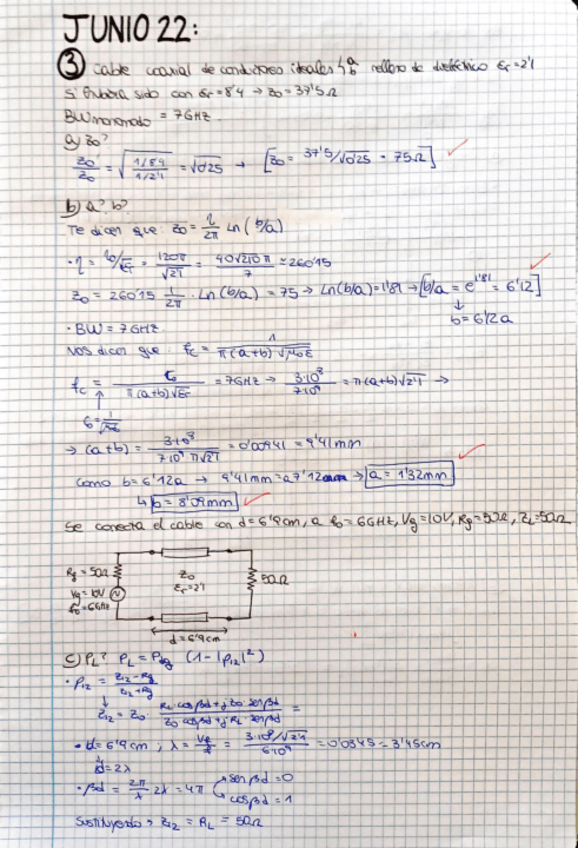 JUNIO 22:
③ Cable coaxial de conductores ideales a b relleno de dieléctrico εr=2'1
Si hubiera sido con εr=8'4 → Z0=37'5Ω
BWmonomodo = 7GHz.
a) Z0?
Z0'/Z0 = √(1/8'4 / 1/2'1) = √0'25 → [Z0 = 37'5/√0'25 = 75Ω]
b) a? b?
Te dicen que: Z0 = η/2π Ln(b/a)
· η = η0/√εr = 120π/√2'1 = 40√210 π/7 = 260'15
Z0 = 260'15 1/2π · Ln(b/a) = 75 → Ln(b/a)=1'81 → [b/a = e^1'81 = 6'12]
↓
b=6'12a
· BW = 7GHz
Nos dicen que: fc = 1/π(a+b)√μ0ε
fc = c0/π(a+b)√εr = 7GHz → 3·10^8/7·10^9 = π(a+b)√2'1 →
→ (a+b) = 3·10^8/7·10^9 π√2'1 = 0'00941 = 9'41mm
Como b=6'12a → 9'41mm=a7'12 → a = 1'32mm
↳ b = 8'09mm
Se conecta el cable con d=6'9cm, a f0=6GHz, Vg=10V, Rg=50Ω, ZL=50Ω
Rg=50Ω
Vg=10V
f0=6GHz
Z0
εr=2'1
50Ω
d=6'9cm
c) PL? PL = Pavg (1-|ρ12|²)
· ρ12 = Z12-Rg/Z12+Rg
↓
Z12 = Z0 · RL cosβd + jZ0 senβd/Z0 cosβd + jRL senβd =
· d=6'9cm ; λ = Vp/f = 3·10^8/√2'1/6·10^9 = 0'0345 = 3'45cm
d=2λ
· βd = 2π/λ 2λ = 4π senβd=0
cosβd=1
Sustituyendo → Z12 = RL = 50Ω